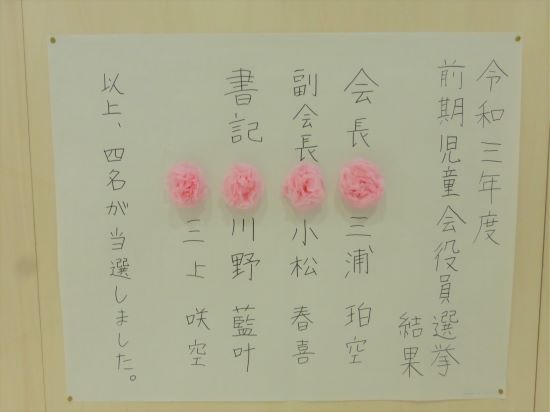 令和三年度
前期児童会役員選挙
結果
会長 三浦 珀空
副会長 小松 春喜
書記 川野 藍叶
三上 咲空
以上、四名が当選しました。